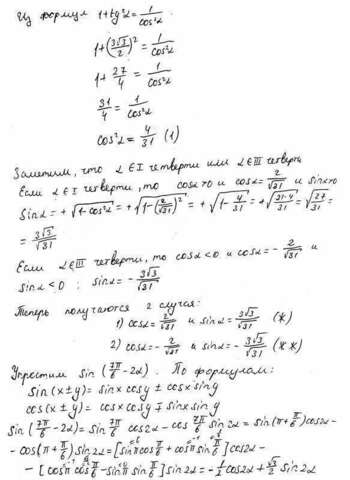 Из формул 1+tg²α = 1/cos²α
1+(3√3/2)² = 1/cos²α
1+ 27/4 = 1/cos²α
31/4 = 1/cos²α
cos²α = 4/31 (1)
Заметим, что α∈I четверти или α∈III четверти
Если α∈I четверти, то cosα>0 и cosα = 2/√31 и sinα>0
Sinα = +√(1-cos²α) = +√(1-(2/√31)²) = +√(1-4/31) = +√((31-4)/31) = √(27/31) =
= 3√3/√31
Если α∈III четверти, то cosα<0 и cosα = - 2/√31 и
sinα<0 ; sinα = - 3√3/√31
Теперь получаются 2 случая:
1) cosα = 2/√31 и sinα = 3√3/√31 (ж)
2) cosα = - 2/√31 и sinα = - 3√3/√31 (жж)
Упростим sin (7π/6 - 2α). По формулам:
sin(x±y) = sinx cosy ± cosx siny
cos(x±y) = cosx cosy ∓ sinx siny
sin (7π/6 - 2α) = sin 7π/6 cos2α - cos 7π/6 sin2α = sin(π+π/6) cos2α -
- cos(π+π/6) sin2α = [sinπ cosπ/6 + cosπ sinπ/6] cos2α -
- [cosπ cosπ/6 - sinπ sinπ/6] sin2α = - 1/2 cos2α + √3/2 sin2α